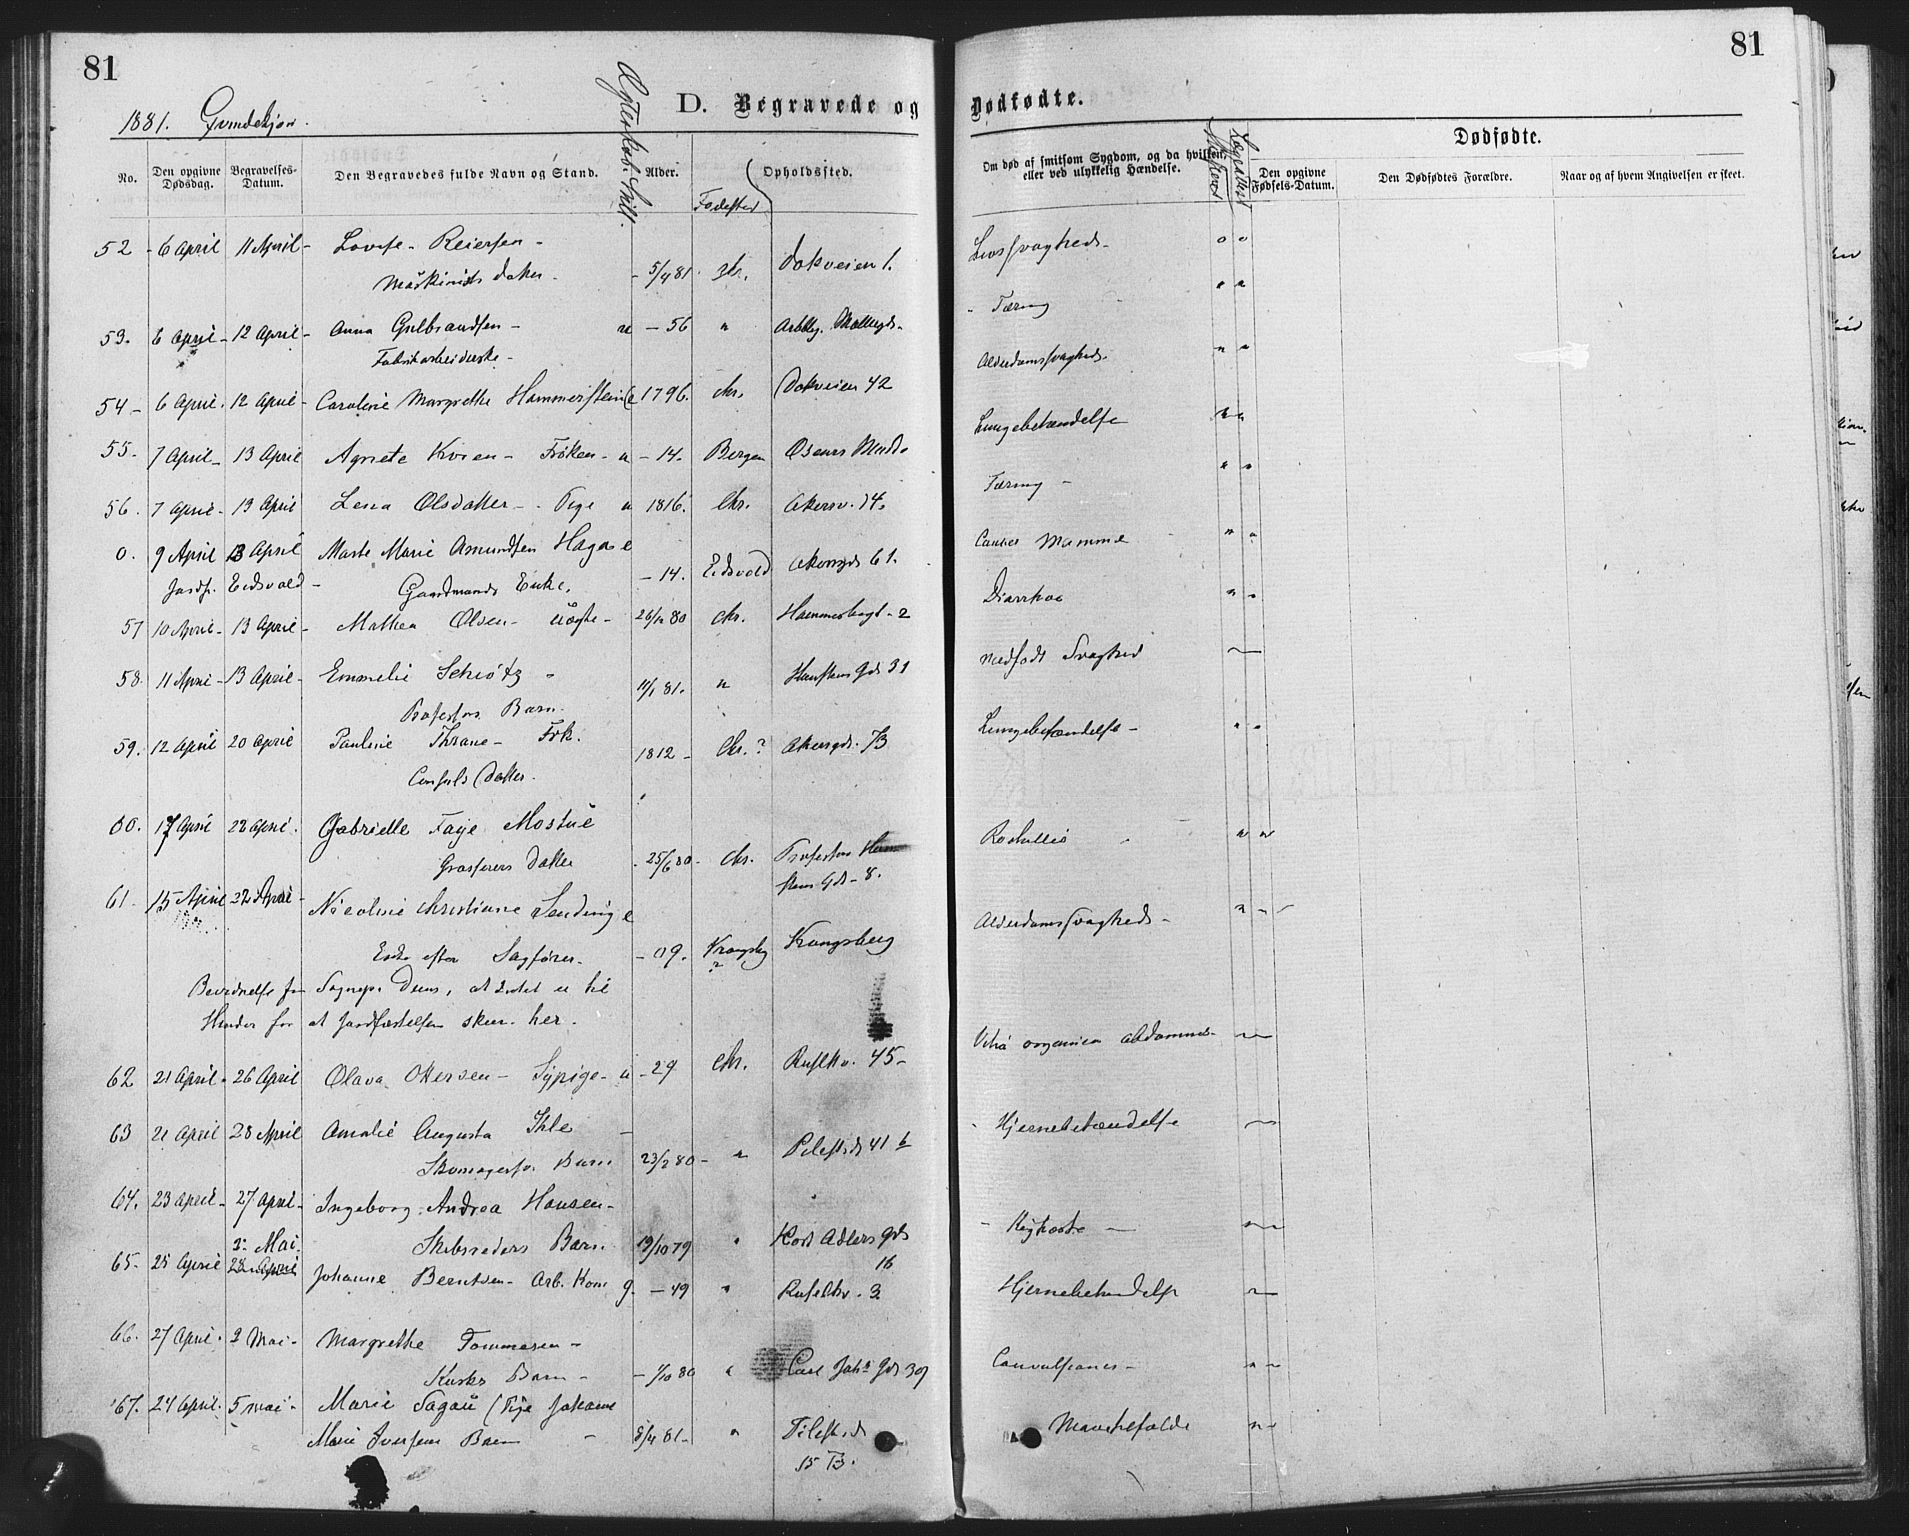 81
81
1881. Qvindekjøn.
D. Begravede og Dødfødte.
Ægteskab. Still.
No.
Den opgivne Dødsdag.
Begravelses-Datum.
Den Begravedes fulde Navn og Stand.
Alder.
Fødested
Opholdssted.
Om død af smitsom Sygdom, og da hvilken,
eller ved ulykkelig Hændelse.
Lægeattest
Dødfødte.
Den opgivne Fødsels-Datum.
Den Dødfødtes Forældre.
Naar og af hvem Angivelsen er skeet.
52 - 6 April 11 April - Lovise - Reiersen - Livssvagheds -
Maskinists datter - - 5/4 81 Chr. Dokveien 1.
- Tæring
53. 6 April - 12 April - Anna Gulbrandsen - u - 56 "
Fabrikarbeiderske -
Alderdomssvagheds.
54 - 6 April. 12 April - Caroline Margrethe Hammerstein e 1796. Chr. Dokveien 42
Lungebetændelse
55. 7 April - 13 April Agnete Kvien - Frøken - u - 14. Bergen
Tæring -
56. 7 April - 13 April Lena Olsdatter - - Pige u 1816. Chr. Akersv. 14.
0. 9 April 13 April Marte Marie Amundsen Haga e Cancer Mamme
Jordf. Eidsvold - Gaardmands Enke. - 14. Eidsvold Akersgd 61.
Diarrhoe
57 10 April - 13 April - Mathea Olsen - uægte - 26/12 80 Chr. Hammersborgt - 2
medfødt Svaghed
58. 11 April - 13 April - Emmelie Schiøtz - 11/1 81. " 31
Professors Barn.
Lungebetændelse -
59. 12 April 20 April Pauline Thrane - Frk. 1812 - Chr. ? Akersgd. 73
Consuls Datter.
60. 17 April 22 April. Gabrielle Faye Mostue
Grosserers Datter - 25/6 80 - Chr. Professor
Gd - 8.
61. 15 April 22 April - Nicoline Christiane Sending e Alderdomssvagheds -
Enke efter Sagfører - - 09. Krongsbg ? Kongsberg
Bevidnelse fra Sognep. Duus, at Intet er til
Hinder for at Jordfæstelsen skeer her.
62 21 April - 26 April Olava Ottersen - Sypige - u - 29 Chr. 45 -
Vitia organica abdominis -
63 21 April 28 April Amalie Augusta Ihle - Hjernebetændelse
Skomagers Barn 23/2 80 - " Pilestd 41 b
64. 23 April - 27 April - Ingeborg Andrea Hansen -
Skibsreders Barn 19/10 79 " Kort Adlers gd 16 - Kighoste -
65 - 25 April 2 Mai 28 April Johanne Berntsen - Arb. Kone g. - 49 " 3 Hjernebetændelse
66. 27 April. 2 Mai - Margrethe Tommesen -
Kusks Barn - - 1/10 80 " Carl Joh. Gd 39 Convulsiones -
67. 24 April. 5 mai - Marie Sagau (Pige Johanne
Marie Iversens Barn - 8/4 81 - " Pilestd 15 B. Mavetilfælde